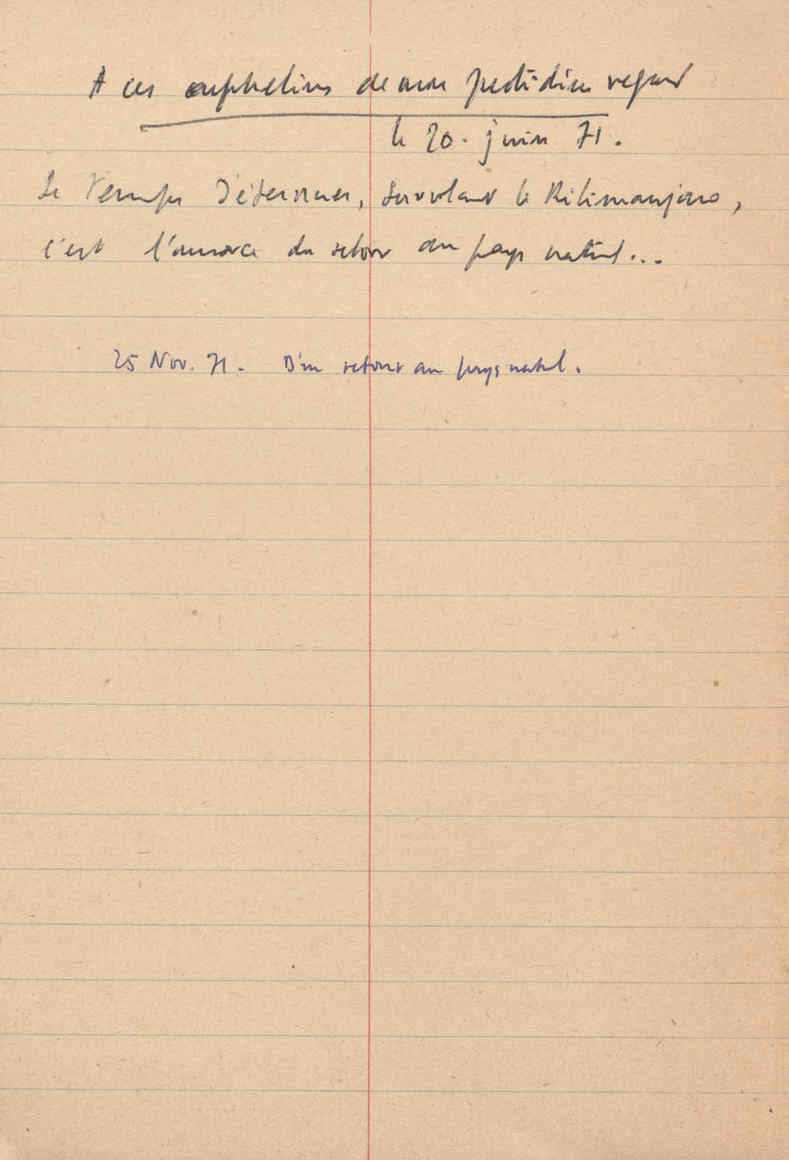 A ces orphelins de mon quotidien regard
le 20. juin 71.
Le Temps d'éternuer, survolant le Kilimanjaro,
c'est l'amorce du retour au pays natal...
25 Nov. 71. D'un retour au pays natal.